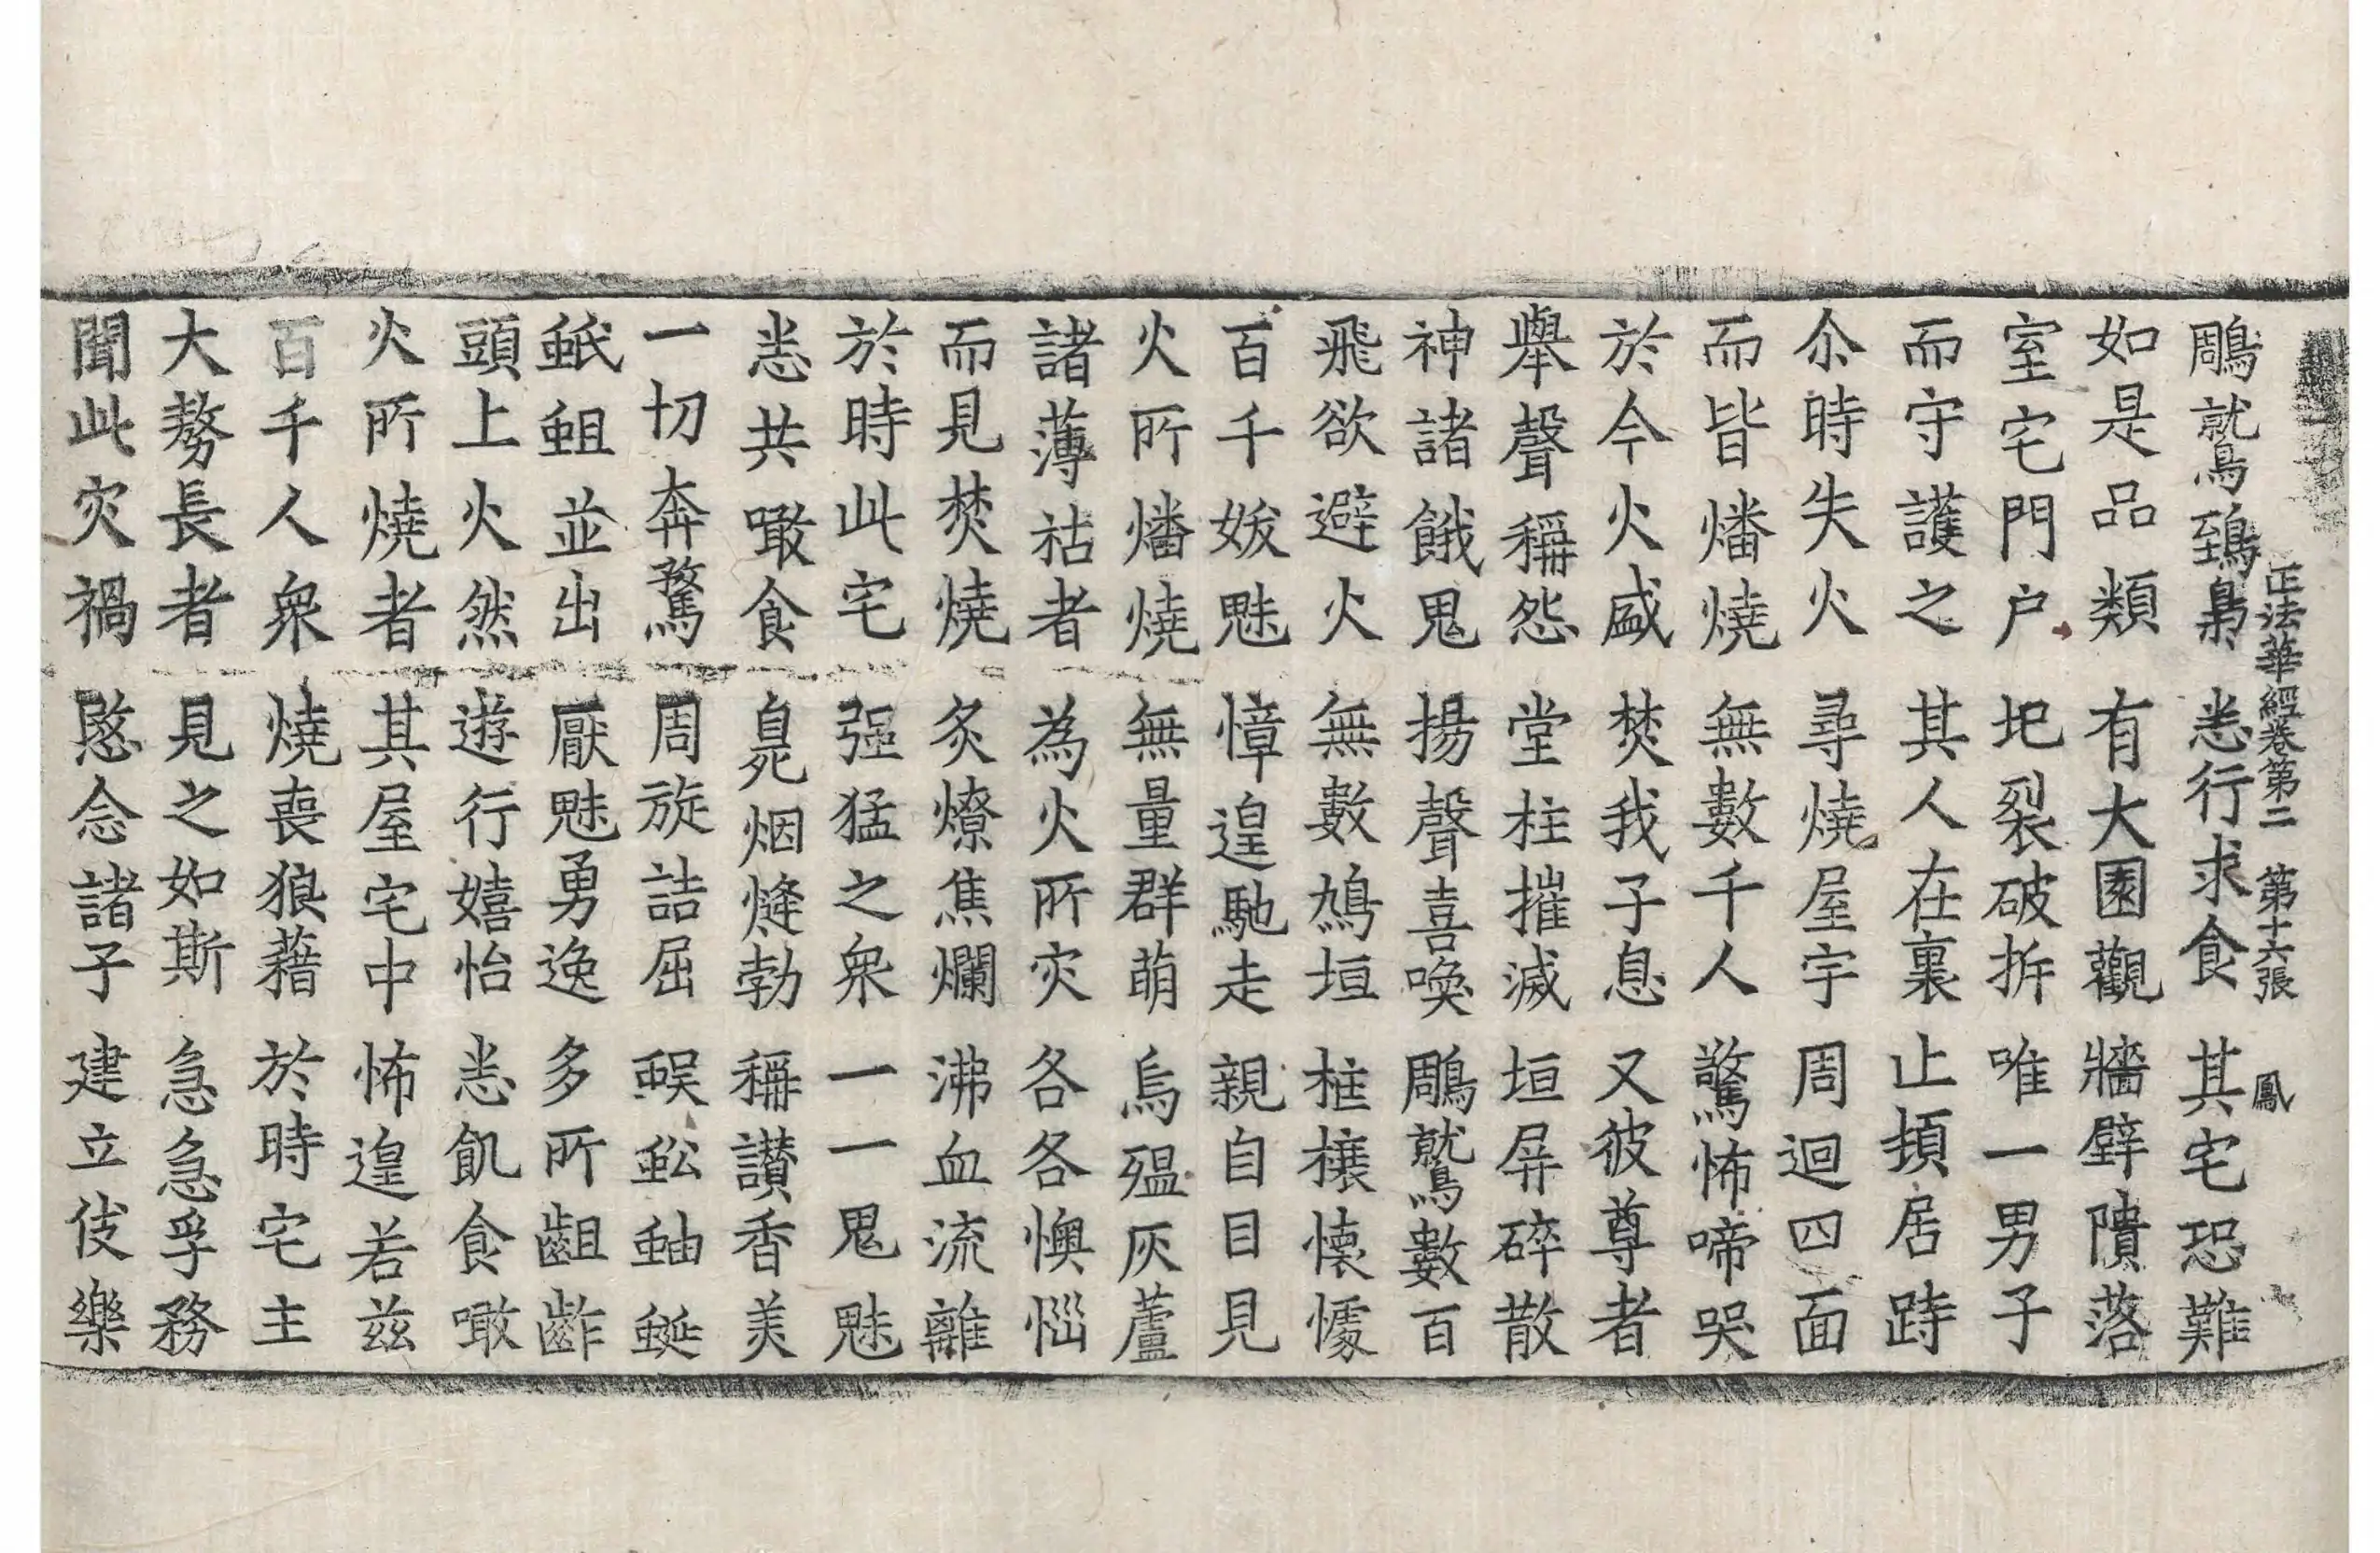 正法華經卷第二 第十六張 鳳
鵰鷲鵄梟 恙行求食 其宅恐難
如是品類 有大園觀 牆壁隤落
室宅門户 圯裂破拆 唯一男子
而守護之 其人在裏 止頓居跱
尒時失火 尋燒屋宇 周迴四面
而皆燔燒 無數千人 驚怖啼哭
於今火盛 焚我子息 又彼尊者
舉聲稱怨 堂柱摧滅 垣屏碎散
神諸餓鬼 揚聲喜喚 鵰鷲數百
飛欲避火 無數鴆垣 柱櫰懷懅
百千妭魅 慞遑馳走 親自目見
火所燔燒 無量群萌 烏殟灰蘆
諸薄祜者 為火所灾 各各懊惱
而見焚燒 炙燎焦爛 沸血流離
於時此宅 强猛之衆 一一鬼魅
悉共噉食 臭烟熢勃 稱讃香美
一切奔騖 周旋詰屈 蜈蚣蚰蜒
蚔蛆並出 厭魅勇逸 多所齟齚
頭上火然 遊行嬉怡 悉飢食噉
火所燒者 其屋宅中 怖遑若兹
百千人衆 燒喪狼藉 於時宅主
大勢長者 見之如斯 急急孚務
聞此灾禍 愍念諸子 建立伎樂